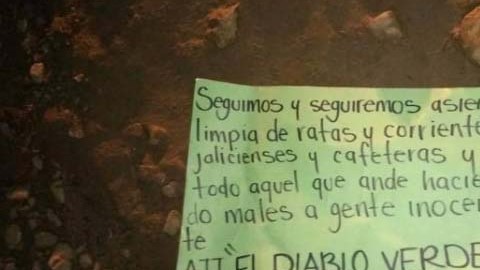 Seguimos y seguiremos asien
limpia de ratas y corriente
jalicienses y cafeteras y
todo aquel que ande hacie
do males a gente inocen
te
ATT "EL DIABLO VERDE